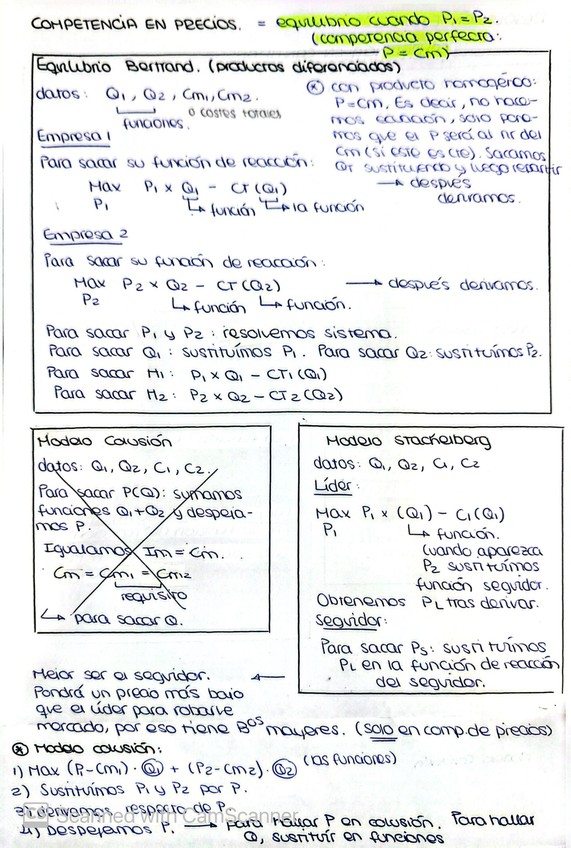 COMPETENCIA EN PRECIOS. = equilibrio cuando P₁ = P₂.
(competencia perfecta:
P = Cm)
Equilibrio Bertrand. (productos diferenciados)
datos: Q₁, Q₂, Cm₁, Cm₂.
funciones. o costes totales
Empresa 1
Para sacar su función de reacción:
Max P₁ x Q₁ - CT (Q₁)
P₁ función la función
→ después
derivamos.
* con producto homogéneo:
P = Cm. Es decir, no hace-
mos ecuación, solo pone-
mos que el P será al
Cm (si este es cte). Sacamos
QT sustituyendo y luego repartir
Empresa 2
Para sacar su función de reacción:
Max P₂ x Q₂ - CT (Q₂) → después derivamos.
P₂ función función.
Para sacar P₁ y P₂: resolvemos sistema.
Para sacar Q₁: sustituímos P₁. Para sacar Q₂: sustituímos P₂.
Para sacar Π₁: P₁ x Q₁ - CT₁ (Q₁)
Para sacar Π₂: P₂ x Q₂ - CT₂ (Q₂)
Modelo Colusión
datos: Q₁, Q₂, C₁, C₂.
Para sacar P(Q): sumamos
funciones Q₁+Q₂ y despeja-
mos P.
Igualamos Im = Cm.
Cm = Cm₁ = Cm₂
requisito
→ para sacar Q.
Modelo Stackelberg
datos: Q₁, Q₂, C₁, C₂
Líder:
Max P₁ x (Q₁) - C₁(Q₁)
P₁ función.
Cuando aparezca
P₂ sustituímos
función seguidor.
Obtenemos PL tras derivar.
Seguidor:
Para sacar PS: sustituímos
PL en la función de reacción
del seguidor.
Mejor ser el seguidor. ←
Pondrá un precio más bajo
que el líder para robarle
mercado, por eso tiene Bºs mayores. (solo en comp. de precios)
* Modelo colusión:
1) Max (P₁-Cm₁) · Q₁ + (P₂-Cm₂) · Q₂ (las funciones)
2) Sustituímos P₁ y P₂ por P.
3) derivamos respecto de P.
4) Despejamos P. → Para hallar P en colusión. Para hallar
Q, sustituír en funciones
Scanned with CamScanner